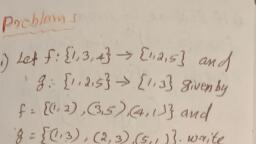 Problems
1) Let f: {1,3,4} → {1,2,5} and
g: {1,2,5} → {1,3} given by
f = {(1,2), (3,5) (4,1)} and
g = {(1,3), (2,3), (5,1)}. write